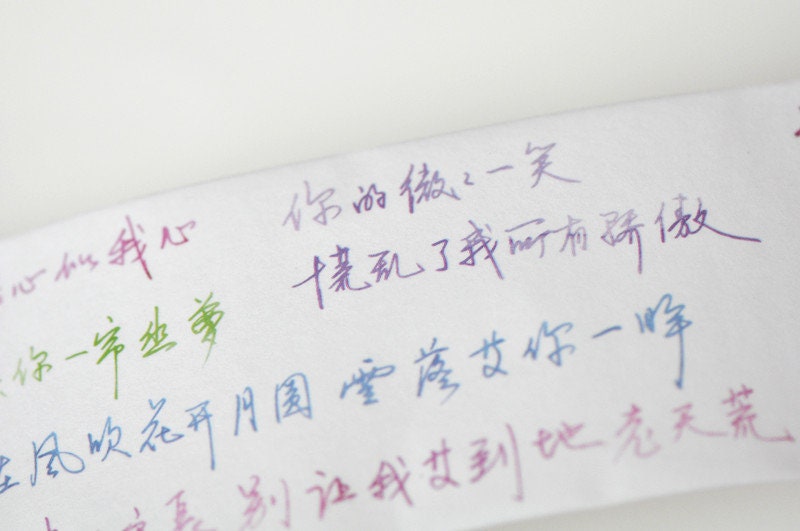 心似我心
你的微々一笑
慌乱了我所有骄傲
你一帘幽梦
在风吹花开月圆 雲落等你一眸
長别让我等到地老天荒